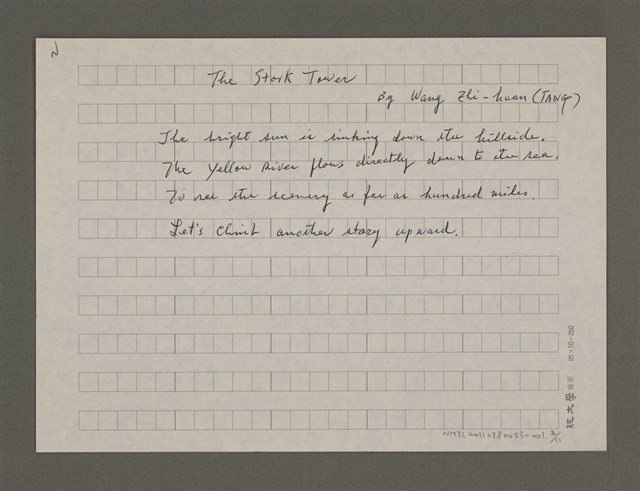 2
The Stork Tower
By Wang Zhi-huan (TANG)
The bright sun is sinking down the hillside.
The Yellow River flows directly down to the sea.
To see the scenery as far as hundred miles.
Let's climb another story upward.
25×10=250
文學
NMTL20110380053-001 2/11